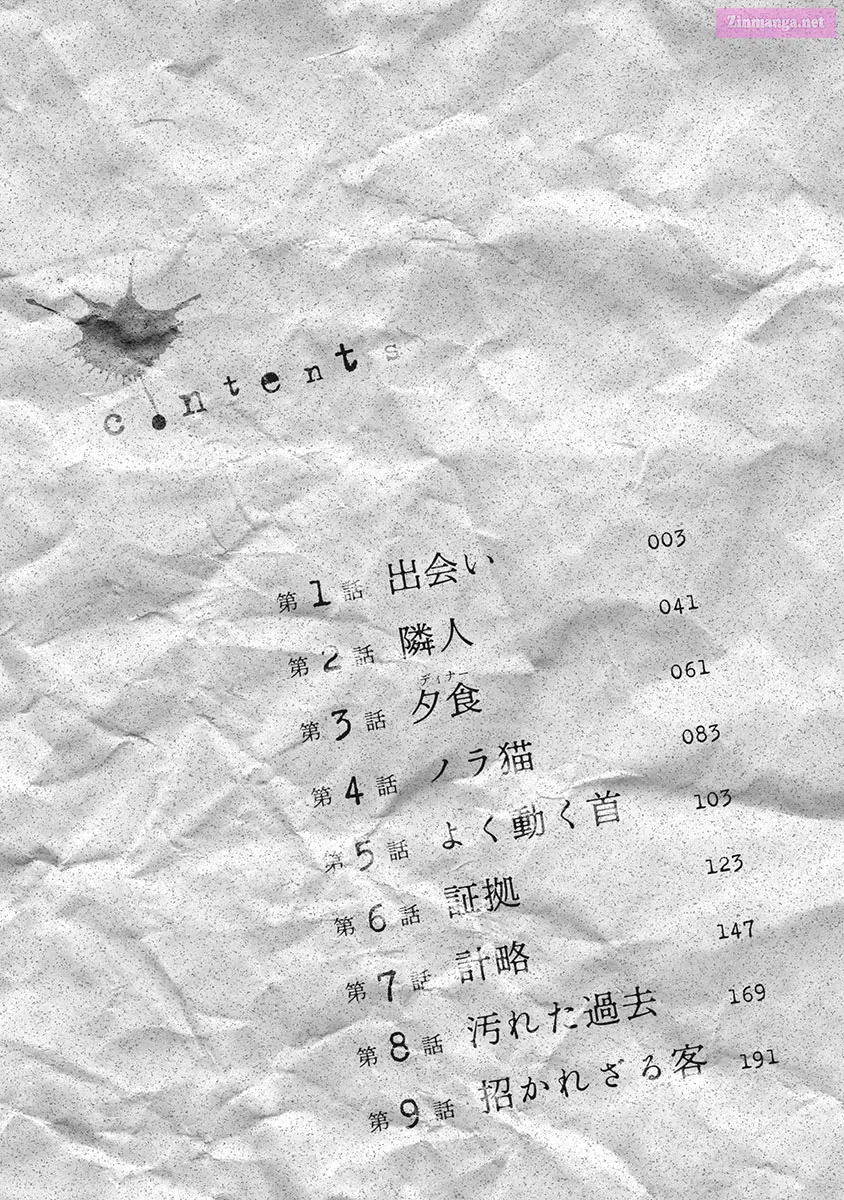 Zinmanga.net
contents
第1話 出会い 003
第2話 隣人 041
ディナー
第3話 夕食 061
第4話 ノラ猫 083
第5話 よく動く首 103
第6話 証拠 123
第7話 計略 147
第8話 汚れた過去 169
第9話 招かれざる客 191